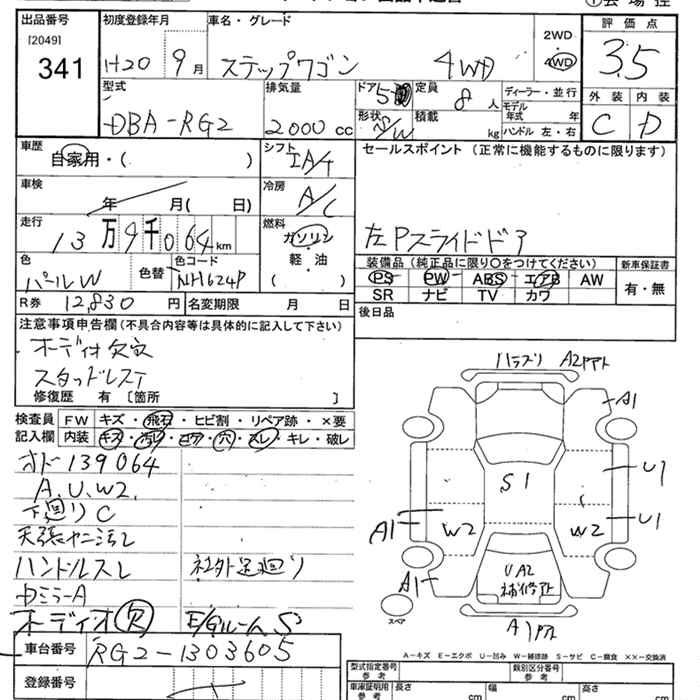 出品番号
[2049]
341
初度登録年月
H20 9月
車名・グレード
ステップワゴン 4WD
2WD
4WD
評価点
3.5
外装 内装
C D
型式
DBA-RG2
排気量
2000 cc
ドア 5
形状 S/W
定員 8 人
積載 kg
ディーラー・並行
モデル年式 年
ハンドル 左・右
車歴
自家用・( )
シフト
IA/T
セールスポイント (正常に機能するものに限ります)
左Pスライドドア
車検
年 月( 日)
冷房
A/C
走行
13万9千064 km
燃料
ガソリン
軽・油
( )
色
パールW
色替
色コード
NH624P
装備品 (純正品に限り○をつけてください)
PS PW ABS エアB AW
SR ナビ TV カワ
新車保証書
有・無
R券 12,830 円
名変期限 月 日
後日品
注意事項申告欄 (不具合内容等は具体的に記入して下さい)
オーディオ欠穴
スタッドレスT
修復歴 有 [箇所 ]
検査員記入欄
FW キズ・飛石・ヒビ割・リペア跡・×要
内装 キズ・汚レ・コゲ・穴・スレ・キレ・破レ
オド139064
A.U.W2.
下廻りC
天張ヤニ汚レ
ハンドルスレ
社外足廻り
ルミラーA
オーディオ欠
E/GルームS
車台番号
RG2-1303605
登録番号
A2
A1
U1
S1
U1
W2
W2
A1
A1
UA2
A1
スペア
A-キズ E-エクボ U-凹み W-補修跡 S-サビ C-腐食 ××-交換済
型式指定番号
参考
類別区分番号
参考
車庫証明用
参考
長さ cm
幅 cm
高さ cm